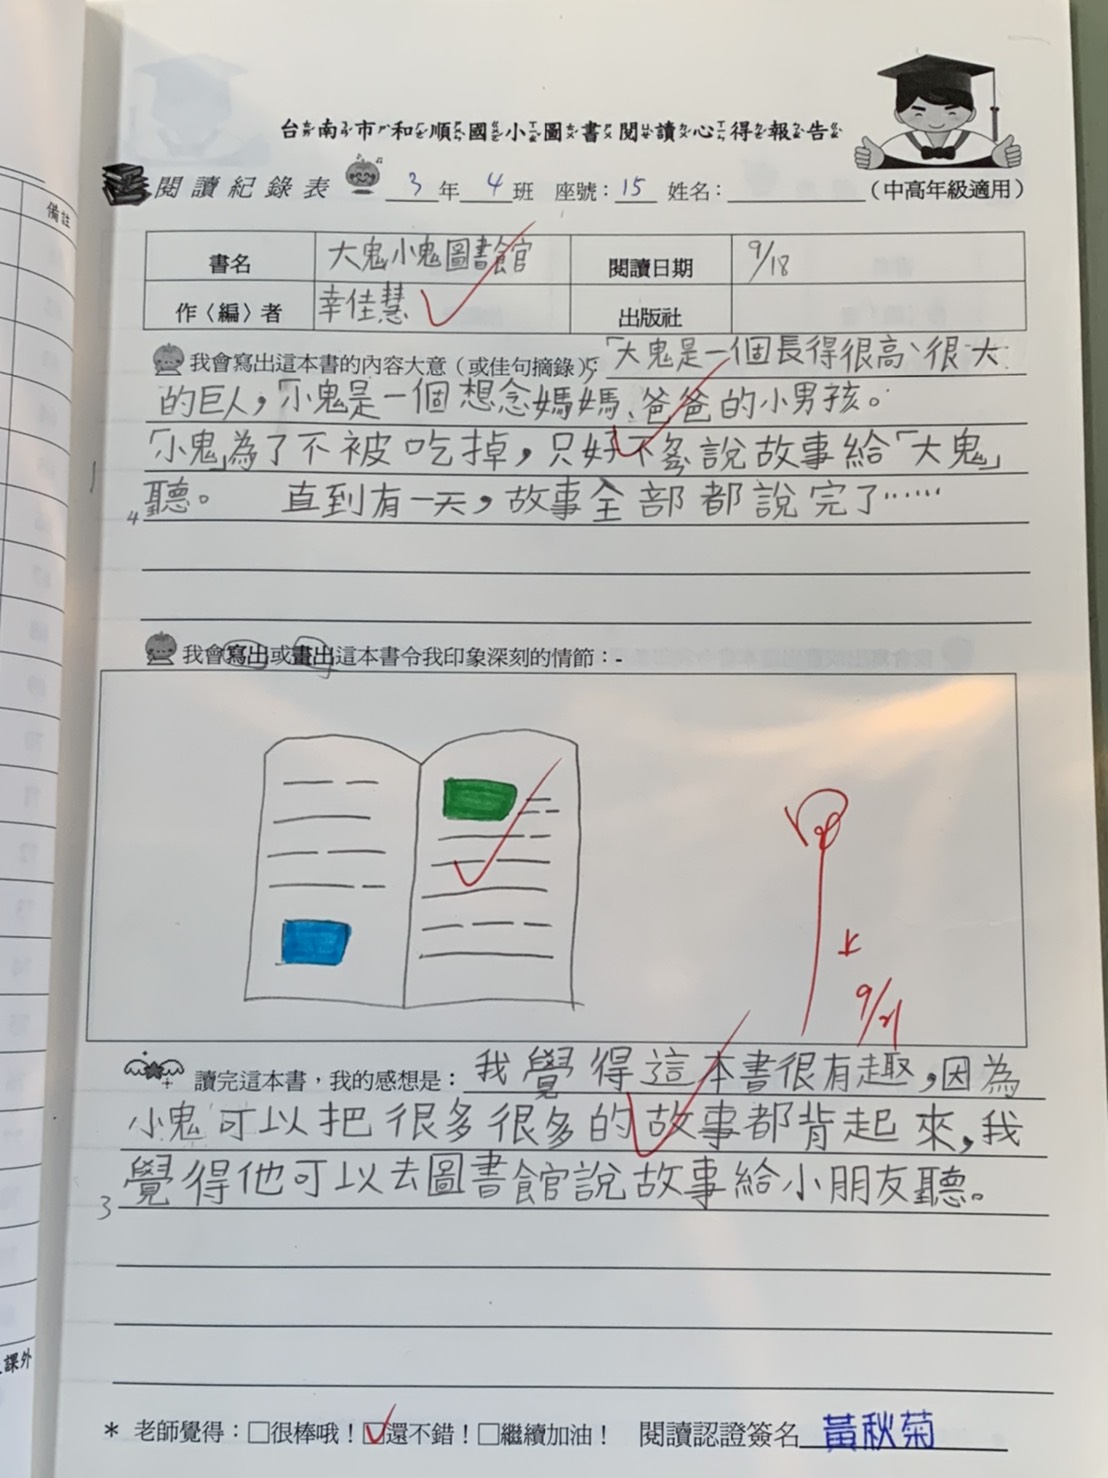 台南市和順國小圖書閱讀心得報告
閱讀紀錄表 3年4班 座號：15 姓名： （中高年級適用）
備註
書名 大鬼小鬼圖書館 閱讀日期 9/18
作〈編〉者 幸佳慧 出版社
我會寫出這本書的內容大意（或佳句摘錄）：「大鬼是一個長得很高、很大
的巨人，小鬼是一個想念媽媽、爸爸的小男孩。
「小鬼」為了不被吃掉，只好不 說故事給「大鬼」
聽。 直到有一天，故事全部都說完了……
4
我會寫出或畫出這本書令我印象深刻的情節：-
9/21
讀完這本書，我的感想是：我覺得這本書很有趣，因為
小鬼可以把很多很多的故事都背起來，我
覺得他可以去圖書館說故事給小朋友聽。
3
課外
* 老師覺得：□很棒哦！☑還不錯！□繼續加油！ 閱讀認證簽名 黃秋菊